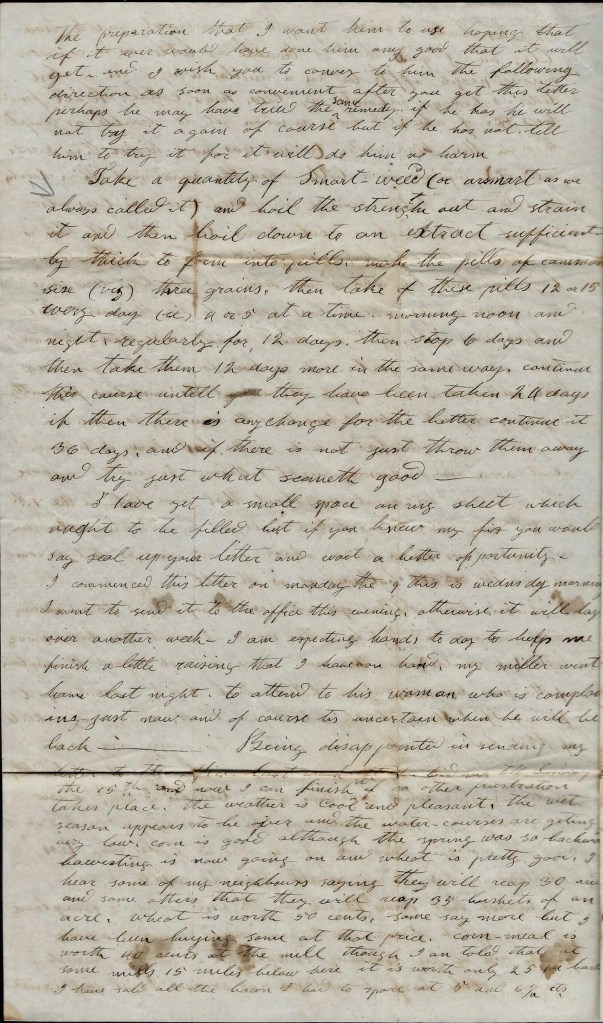 the preparation that I want him to use hoping that
if it ever would have done him any good that it will
yet. and I wish you to convey to him the following
direction as soon as convenient after you get this letter
perhaps he may have tried the same remedy if he has he will
not try it again of course but if he has not. tell
him to try it for it will do him no harm
Take a quantity of Smart weed (or arsmart as we
always called it) and boil the strength out and strain
it and then boil down to an extract sufficient
ly thick to form into pills. make the pills of common
sise (viz) three grains. then take of these pills 12 or 15
every day (ie) 4 or 5 at a time. morning noon and
night. regularly for 12 days. then stop 6 days and
then take them 12 days more in the same way. continue
this course untell they have been taken 24 days
if then there is any change for the better continue it
36 days. and if there is not just throw them away
and try just what seemeth good —
I have yet a small space on my sheet which
ought to be filled but if you knew my fix you would
say seal up your letter and wait a better opportunity –
I commenced this letter on monday the 9 this is wednsday morning
I want to send it to the office this evening, otherwise it will lay
over another week – I am expecting hands to day to help me
finish a little raising that I have on hand. my miller went
home last night. to attend to his woman who is complain
ing just now and of course tis uncertain when he will be
back — Being disappointed in sending my
letter to the
the 15th and now I can finish if no other prostration
takes place. the weather is cool and pleasant. the wet
season appears to be over and the water-courses are geting
very low. corn is good although the spring was so backward
harvesting is now going on and wheat is pretty good. I
hear some of my neighbours saying they will reap 30 and
and some others that they will reap 35 bushels of an
acre. wheat is worth 50 cents, some say more but I
have been buying some at that price. corn-meal is
worth 40 cents at the mill though I am told that at
some mills 15 miles below here it is worth only 25
I have sold all the bacon I had to spare at 5 and 6¼ cts